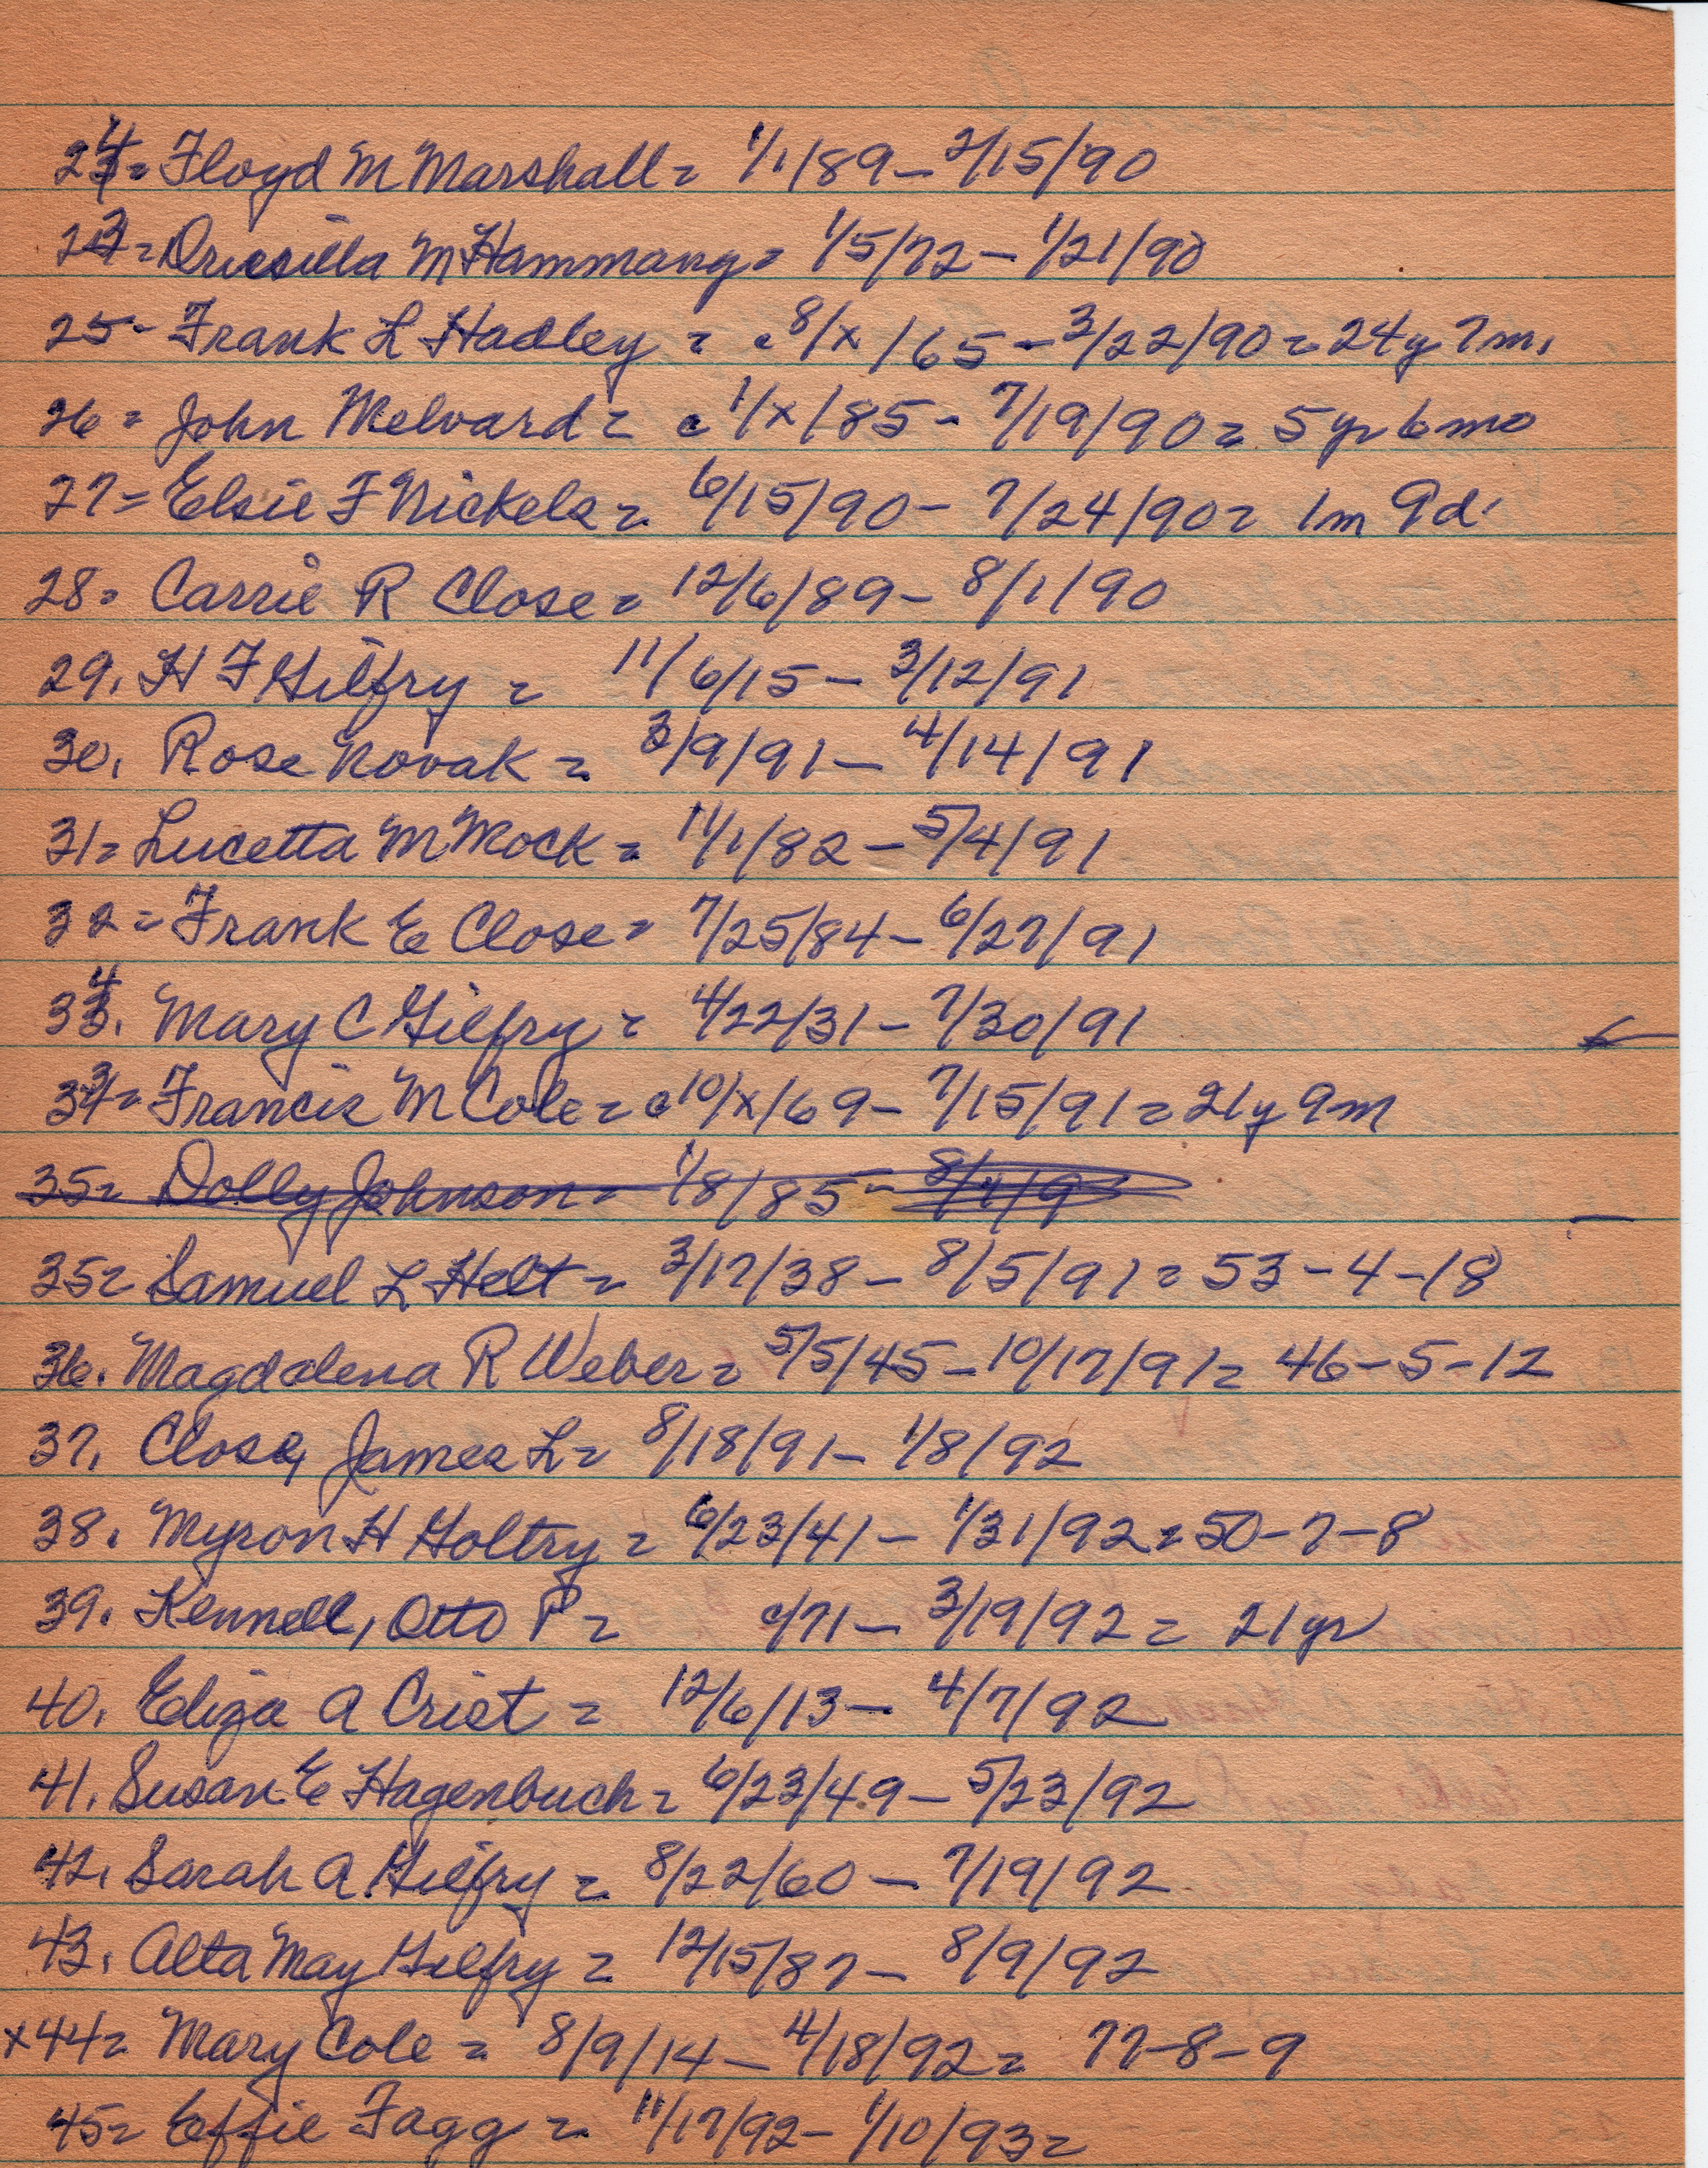 24= Floyd M Marshall = 1/1/89 - 2/15/90
23 = Dricsilla M Hammang = 1/5/72 - 1/21/90
25 - Frank L Hadley = c 8/x/65 - 3/22/90 = 24y 7m.
26 = John Melvard = c 1/x/85 - 7/19/90 = 5 yr 6 mo
27 = Elsie F Nickels = 6/15/90 - 7/24/90 = 1m 9d.
28 = Carrie R Close = 12/6/89 - 8/1/90
29. H F Gilfry = 11/6/15 - 3/12/91
30. Rose Novak = 3/9/91 - 4/14/91
31 = Lucetta M Mock = 11/1/82 - 5/4/91
32 = Frank E Close = 7/25/84 - 6/27/91
34. Mary C Gilfry = 4/22/31 - 7/30/91 ←
33 = Francis M Cole = c 10/x/69 - 7/15/91 = 21y 9m
35 = Dolly Johnson = 1/8/85 -
35 = Samuel L Helt = 3/17/38 - 8/5/91 = 53 - 4 - 18
36. Magdalena R Weber = 5/5/45 - 10/17/91 = 46 - 5 - 12
37. Close, James L = 8/18/91 - 1/8/92
38. Myron H Goltry = 6/23/41 - 1/31/92 = 50 - 7 - 8
39. Kennell, Otto P = c/71 - 3/19/92 = 21 yr
40. Eliza A Crist = 12/6/13 - 4/7/92
41. Susan E Hagenbuch = 6/23/49 - 5/23/92
42. Sarah A Gilfry = 8/22/60 - 7/19/92
43. Alta May Gilfry = 12/15/87 - 8/9/92
x 44 = Mary Cole = 8/9/14 - 4/18/92 = 77 - 8 - 9
45 = Effie Fagg = 11/17/92 - 1/10/93 =